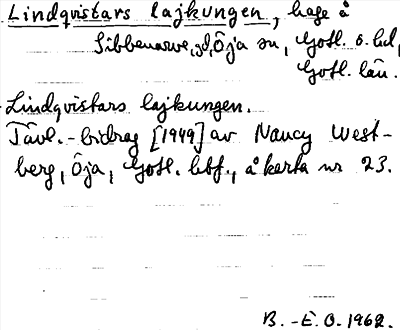 Lindqvistars lajkungen, hage å
Sibbenarve, gd, Öja sn, Gotl. s. hd,
Gotl. län.
Lindqvistars lajkungen.
Tävl.-bidrag [1949] av Nancy West-
berg, Öja, Gotl. hbf., å karta nr 23.
B.-E. O. 1962.